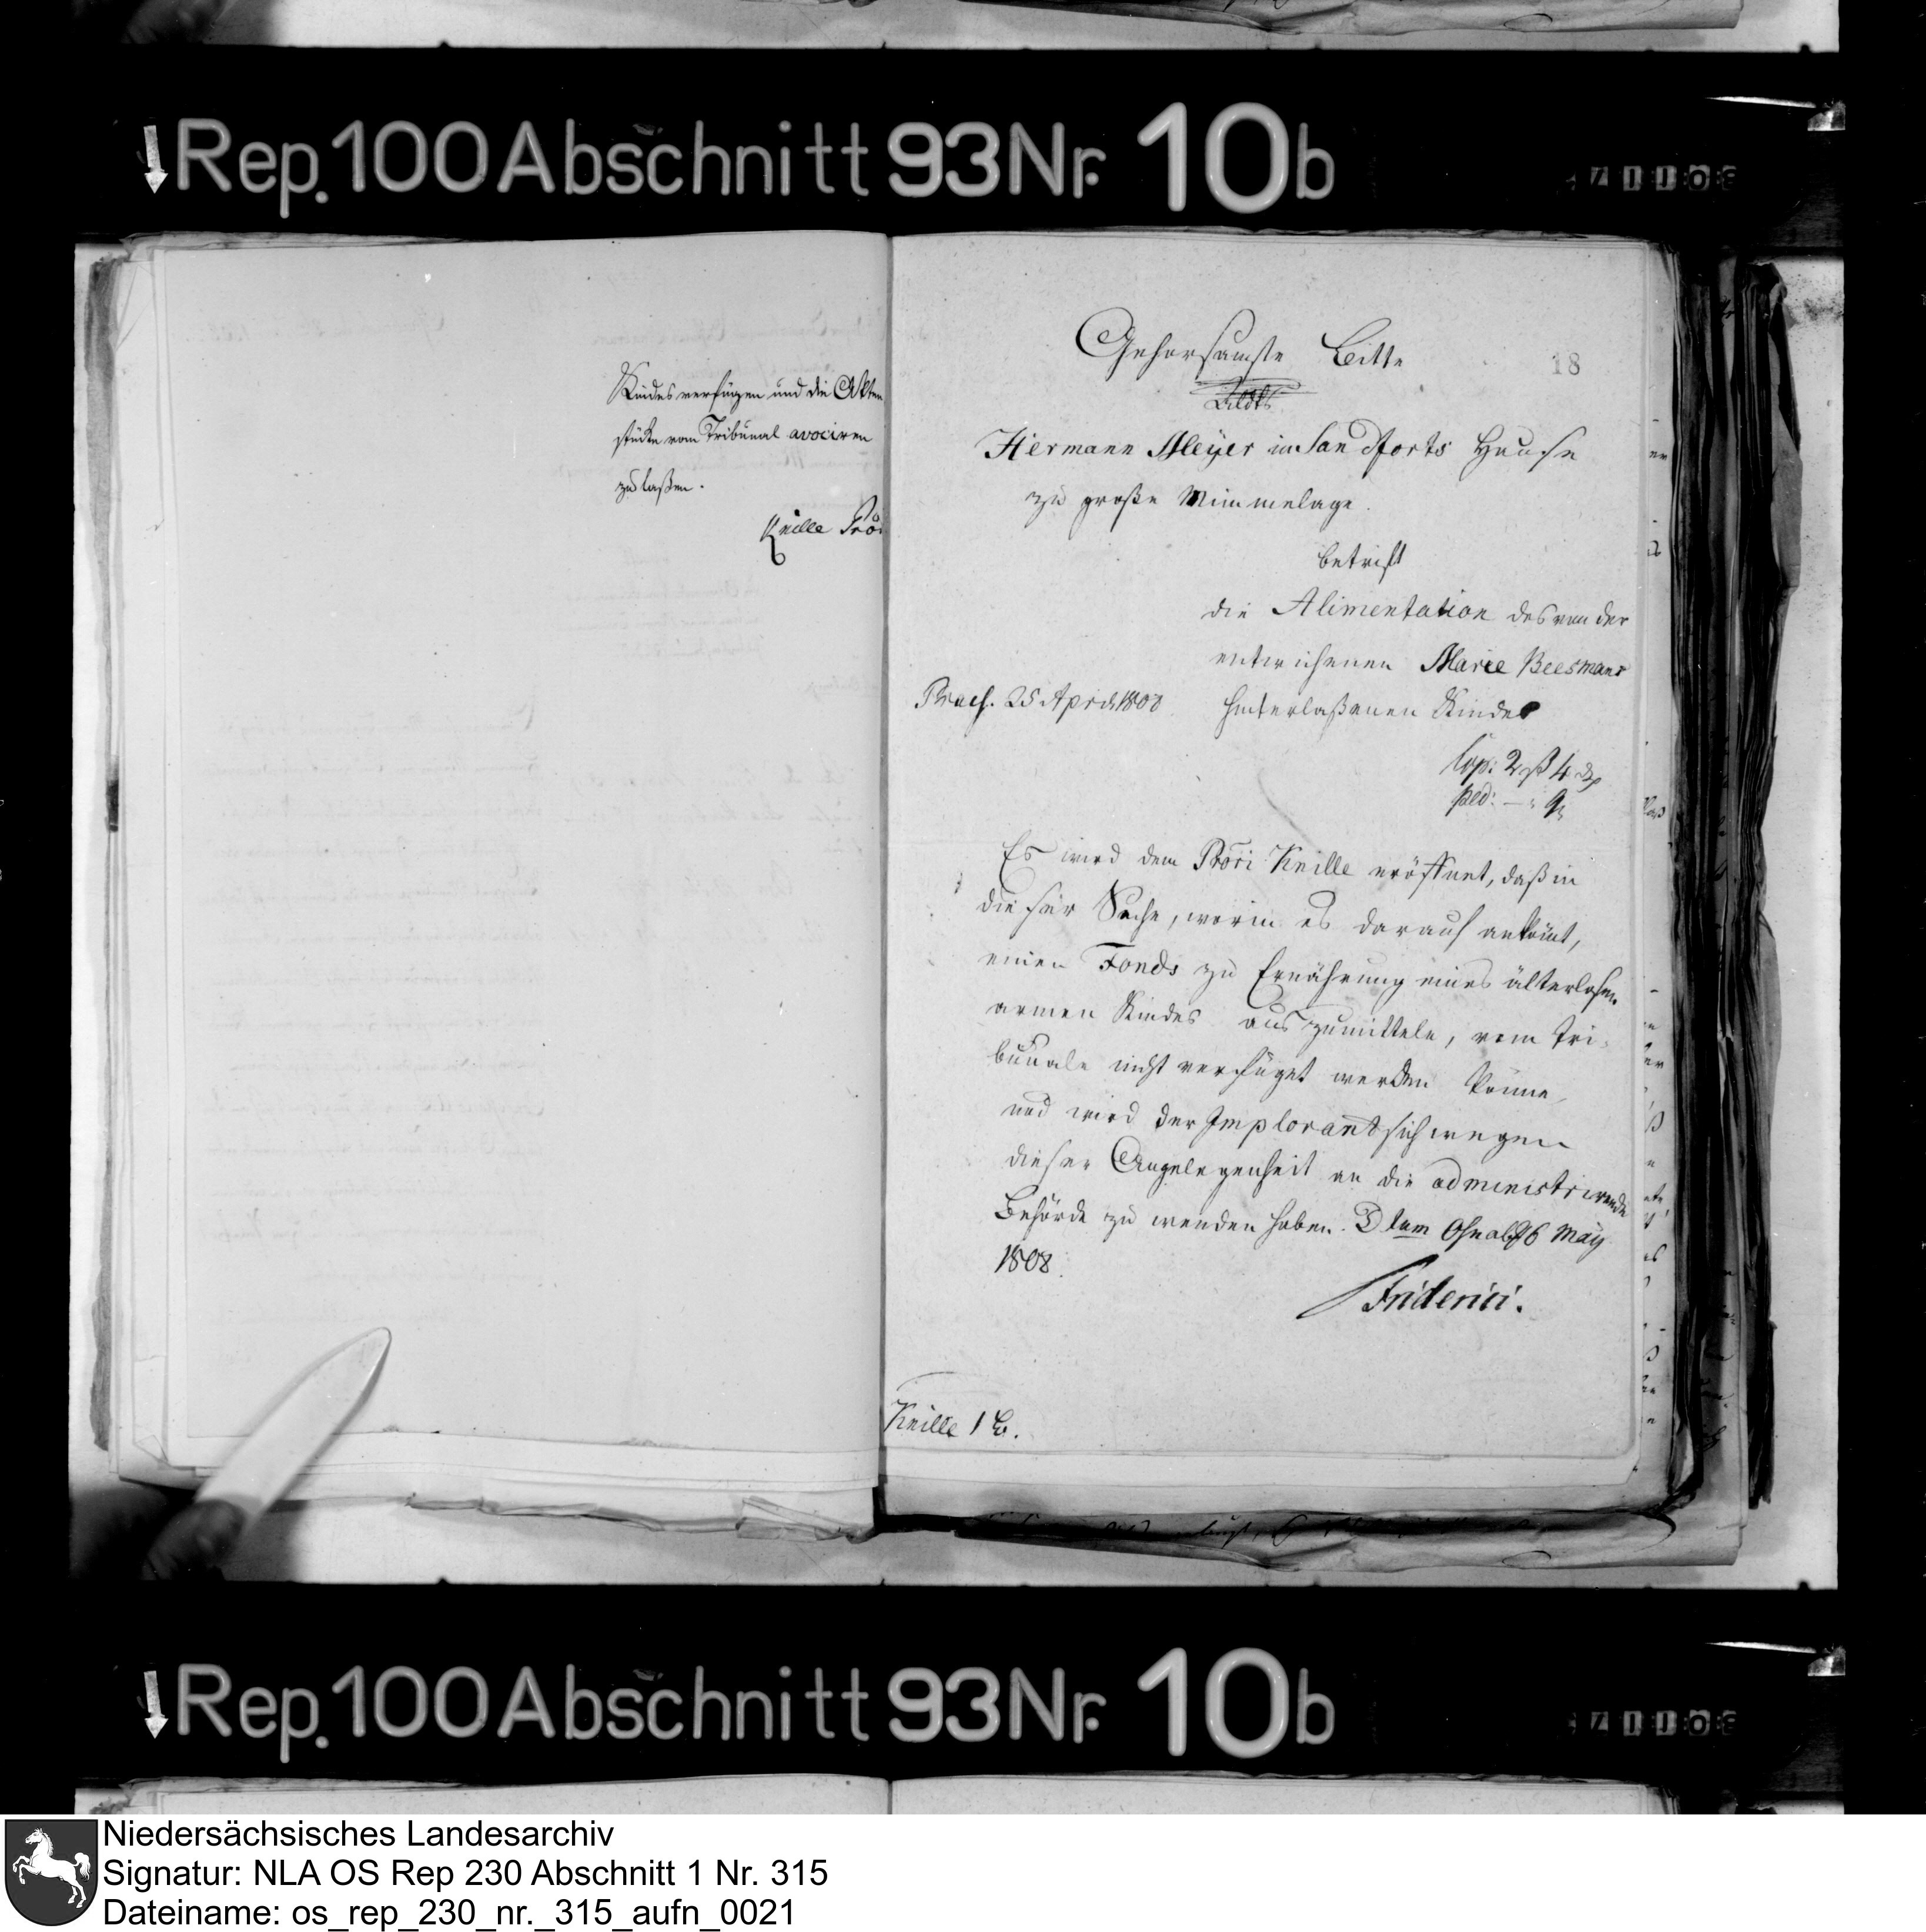 Rep. 100 Abschnitt 93 Nr. 10b
Kindes verfügen und die Akten
stücke vom Tribunal avociren
zu laßen.
Knille
18
Gehorsamste Bitte
Hermann Meÿer in Sandforts Hause
zu große Mimmelage.
betrift
die Alimentation des von der
entwichenen Marie Beesmans
hinterlaßenen Kindes
Praes. 25 April 1808
Cop: 2 ß 4 d
Es wird dem Knille eröffnet, daß in
dieser Sache, worin es darauf ankömt,
einen Fonds zu Ernährung eines älterlosen
armen Kindes auszumitteln, vom Tri-
bunale nicht verfüget werden könne,
und wird der Implorant sich wegen
dieser Angelegenheit an die administrirende
Behörde zu wenden haben. Dtum Osnab. 6 May
1808.
Friderici.
Knille
Rep. 100 Abschnitt 93 Nr. 10b
Niedersächsisches Landesarchiv
Signatur: NLA OS Rep 230 Abschnitt 1 Nr. 315
Dateiname: os_rep_230_nr._315_aufn_0021